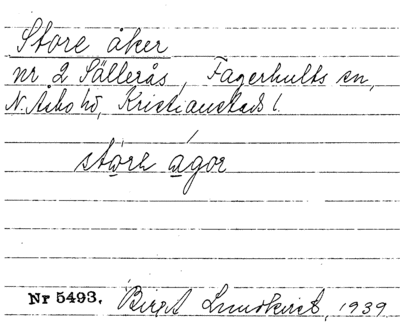 Store åker
nr 2 Sällerås, Fagerhults sn,
N. Åsbo hd, Kristianstads l.
störe ågor
Nr 5493. Birgit Lundkvist, 1939